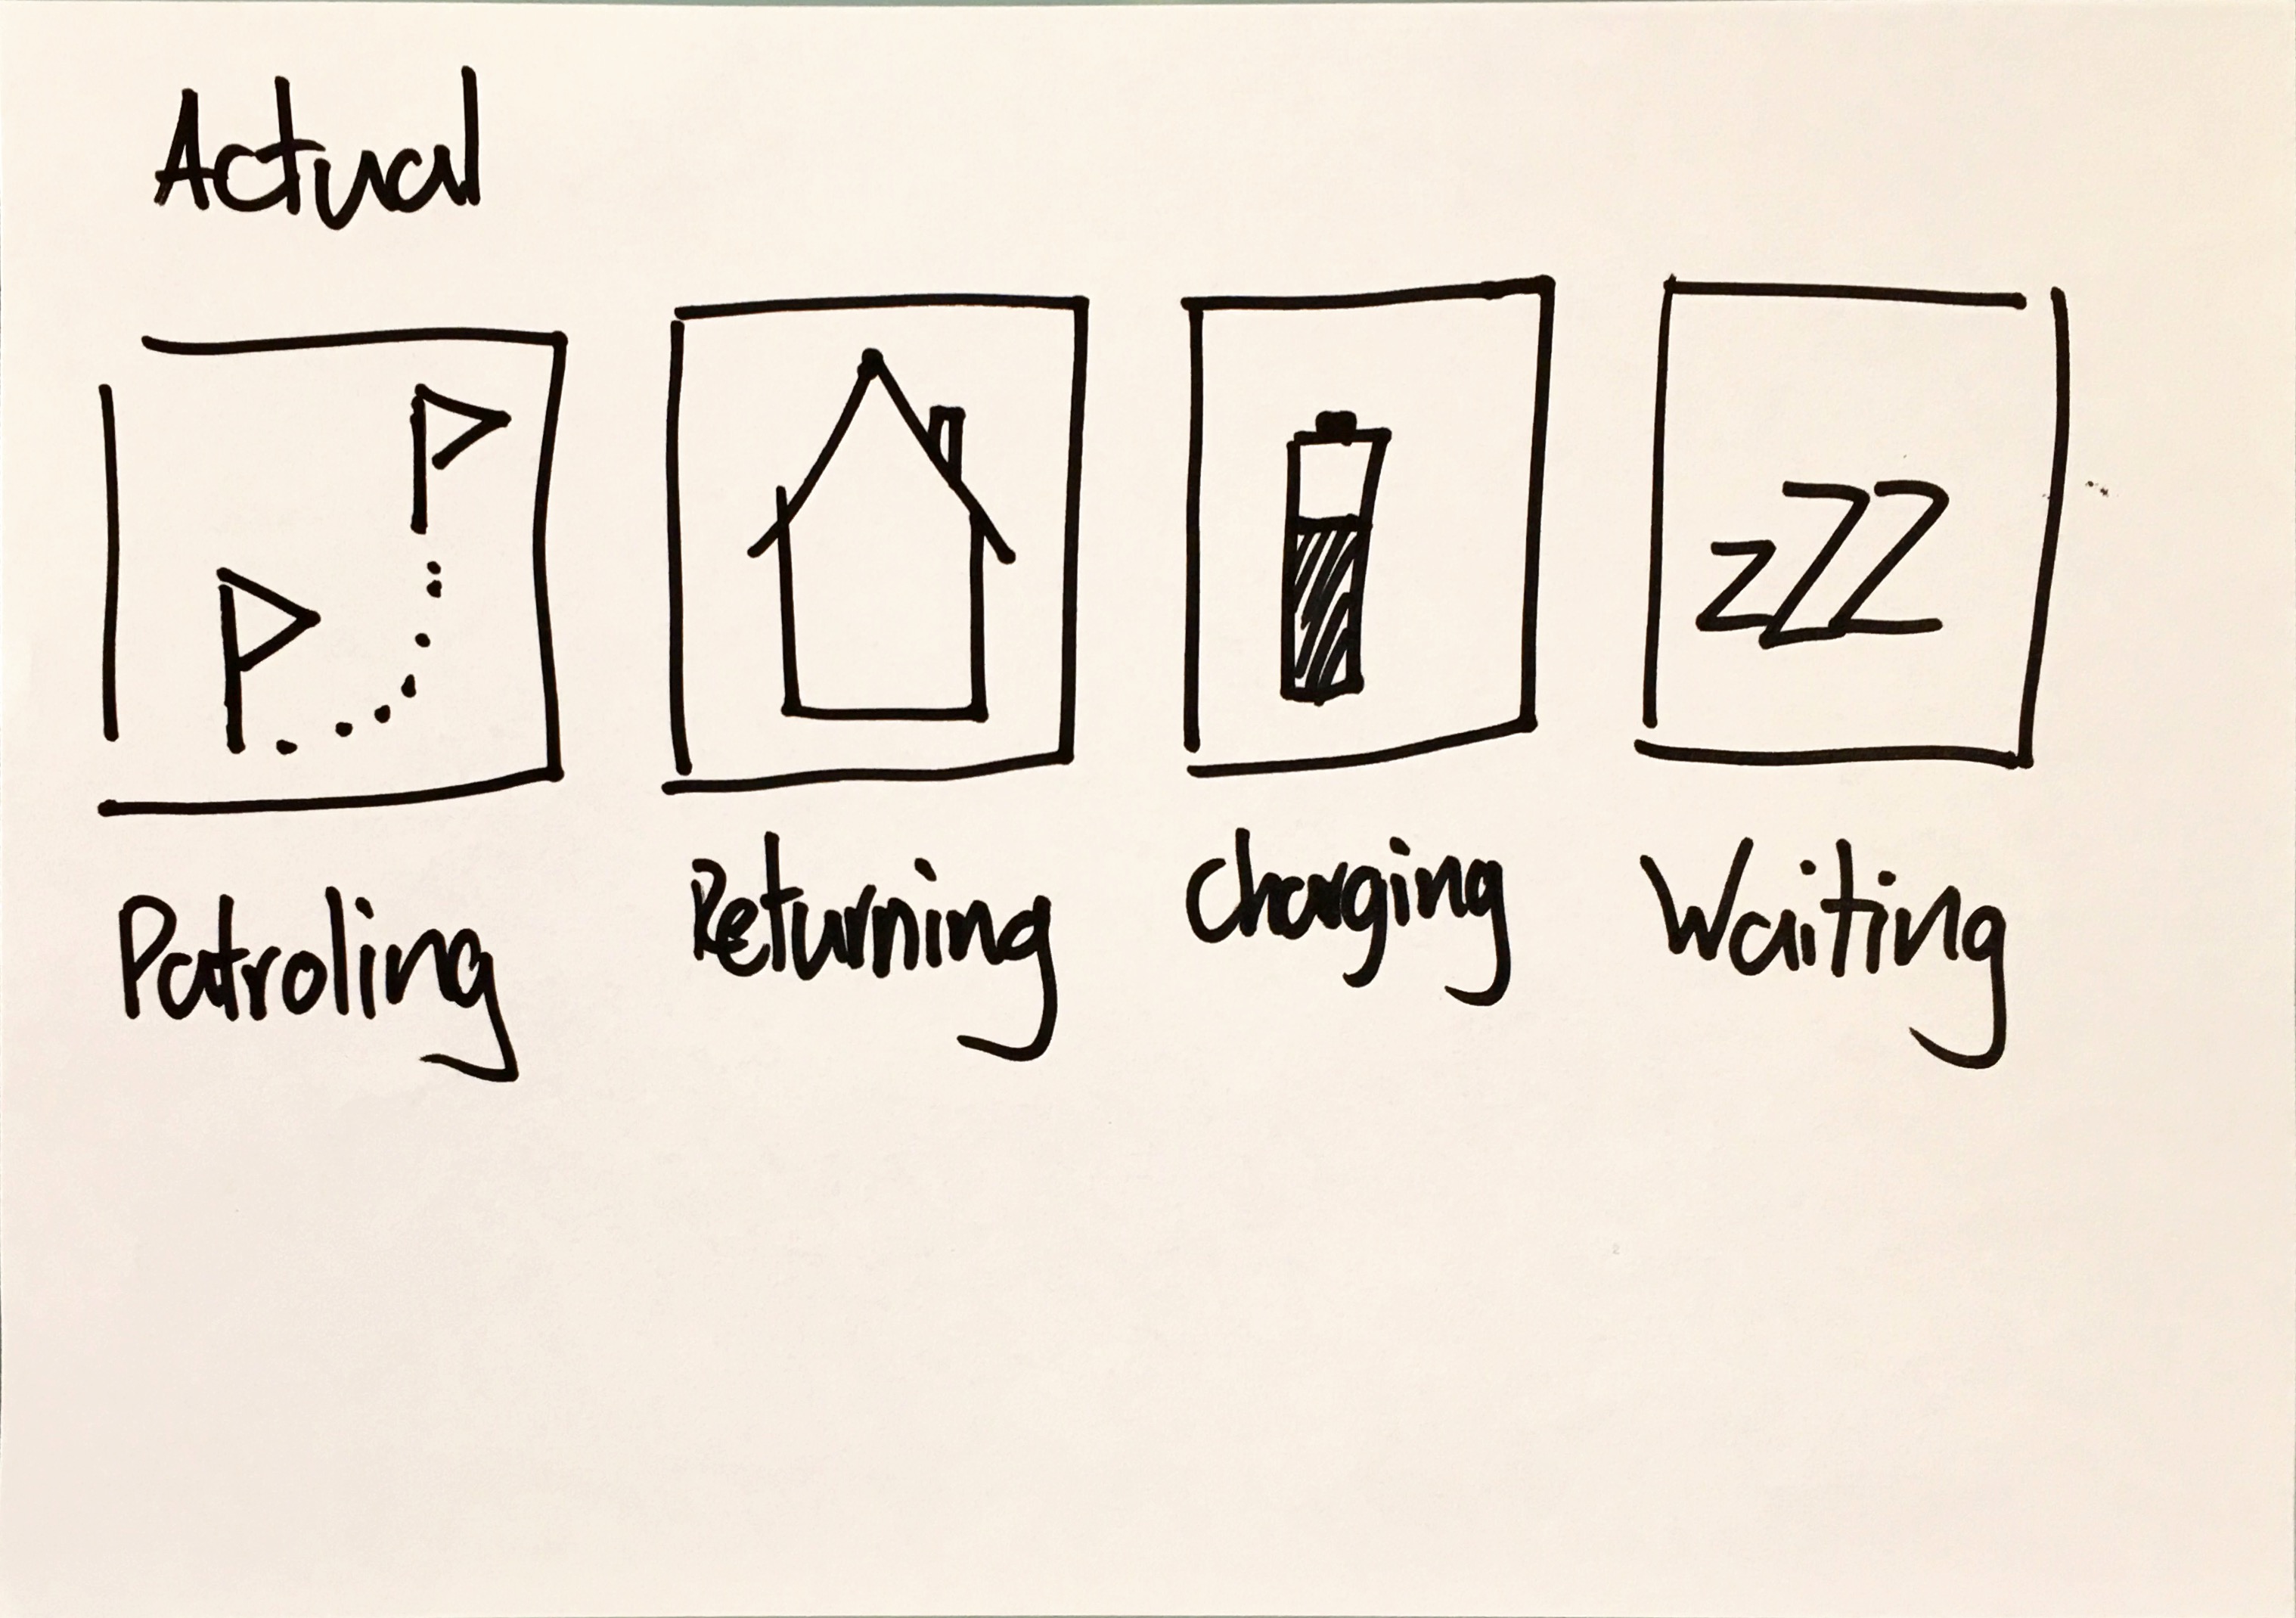 Actual
zZZ
Patroling
Returning
Charging
Waiting